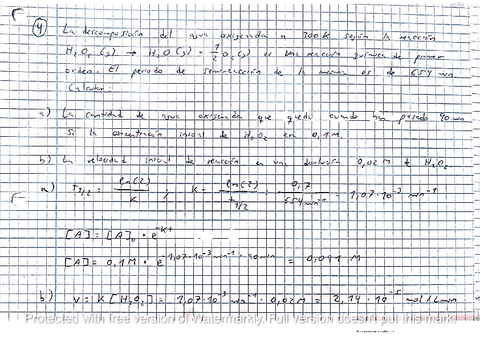 ④ La descomposición del agua oxigenada a 300K según la reacción
H₂O₂(g) → H₂O(g) + 1/2 O₂(g) es una reacción química de primer
orden. El periodo de semirreacción de la misma es de 654 min.
Calcular:
a) La cantidad de agua oxigenada que queda cuando han pasado 90 min
si la concentración inicial de H₂O₂ era 0,1M.
b) La velocidad inicial de reacción en una disolución 0,02M de H₂O₂.
a) t1/2 = ln(2)/K ; K = ln(2)/t1/2 = 0,7/654 min⁻¹ = 1,07·10⁻³ min⁻¹
[A] = [A]₀ · e^-Kt
[A] = 0,1M · e^-1,07·10⁻³ min⁻¹ · 90min = 0,091 M
b) v = K[H₂O₂] = 1,07·10⁻³ min⁻¹ · 0,02M = 2,14 · 10⁻⁵ mol/L min
Protected with free version of Watermarkly. Full version doesn't put this mark.